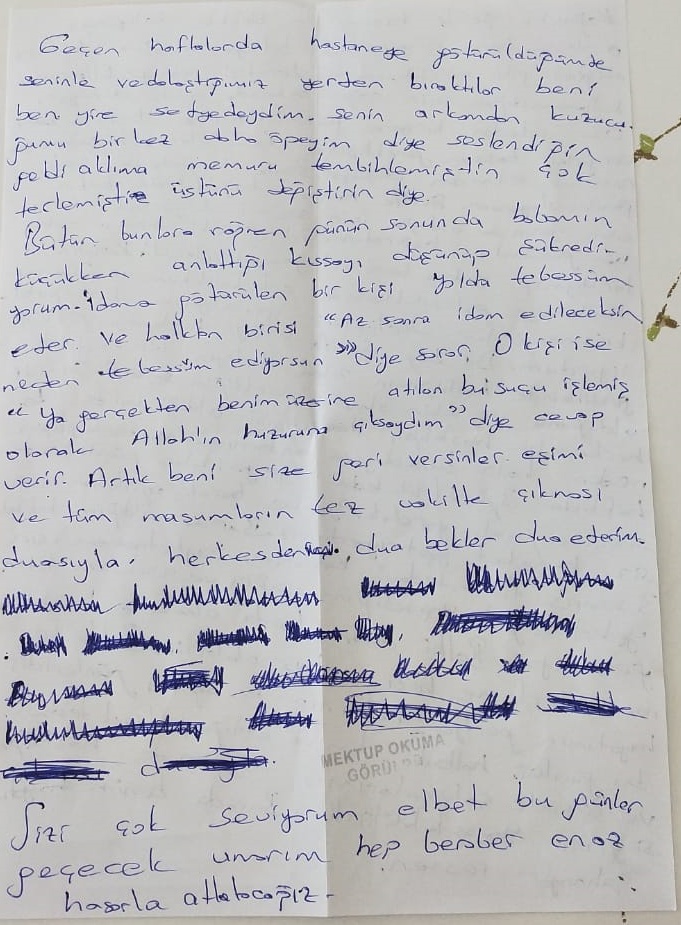 Geçen haftalarda hastaneye götürüldüğümde
seninle vedalaştığımız yerden bıraktılar beni
ben yine sedyedeydim. senin arkamdan kuzucu
ğumu bir kez daha öpeyim diye seslendiğin
geldi aklıma memuru tembihlemiştin çok
terlemiştir üstünü değiştirin diye.
Bütün bunlara rağmen günün sonunda babamın
küçükken anlattığı kıssayı düşünüp şükredi-
yorum. İdama götürülen bir kişi yolda tebessüm
eder. Ve halktan birisi "Az sonra idam edileceksin
neden tebessüm ediyorsun" diye sorar. O kişi ise
"Ya gerçekten benim üzerime atılan bu suçu işlemiş
olarak Allah'ın huzuruna çıksaydım" diye cevap
verir. Artık beni size geri versinler. eşimi
ve tüm masumların tez vakitte çıkması
duasıyla. herkesden dua bekler dua ederim.
MEKTUP OKUMA
GÖRÜLDÜ
Sizi çok seviyorum elbet bu günler
geçecek umarım hep beraber en az
hasarla atlatacağız.